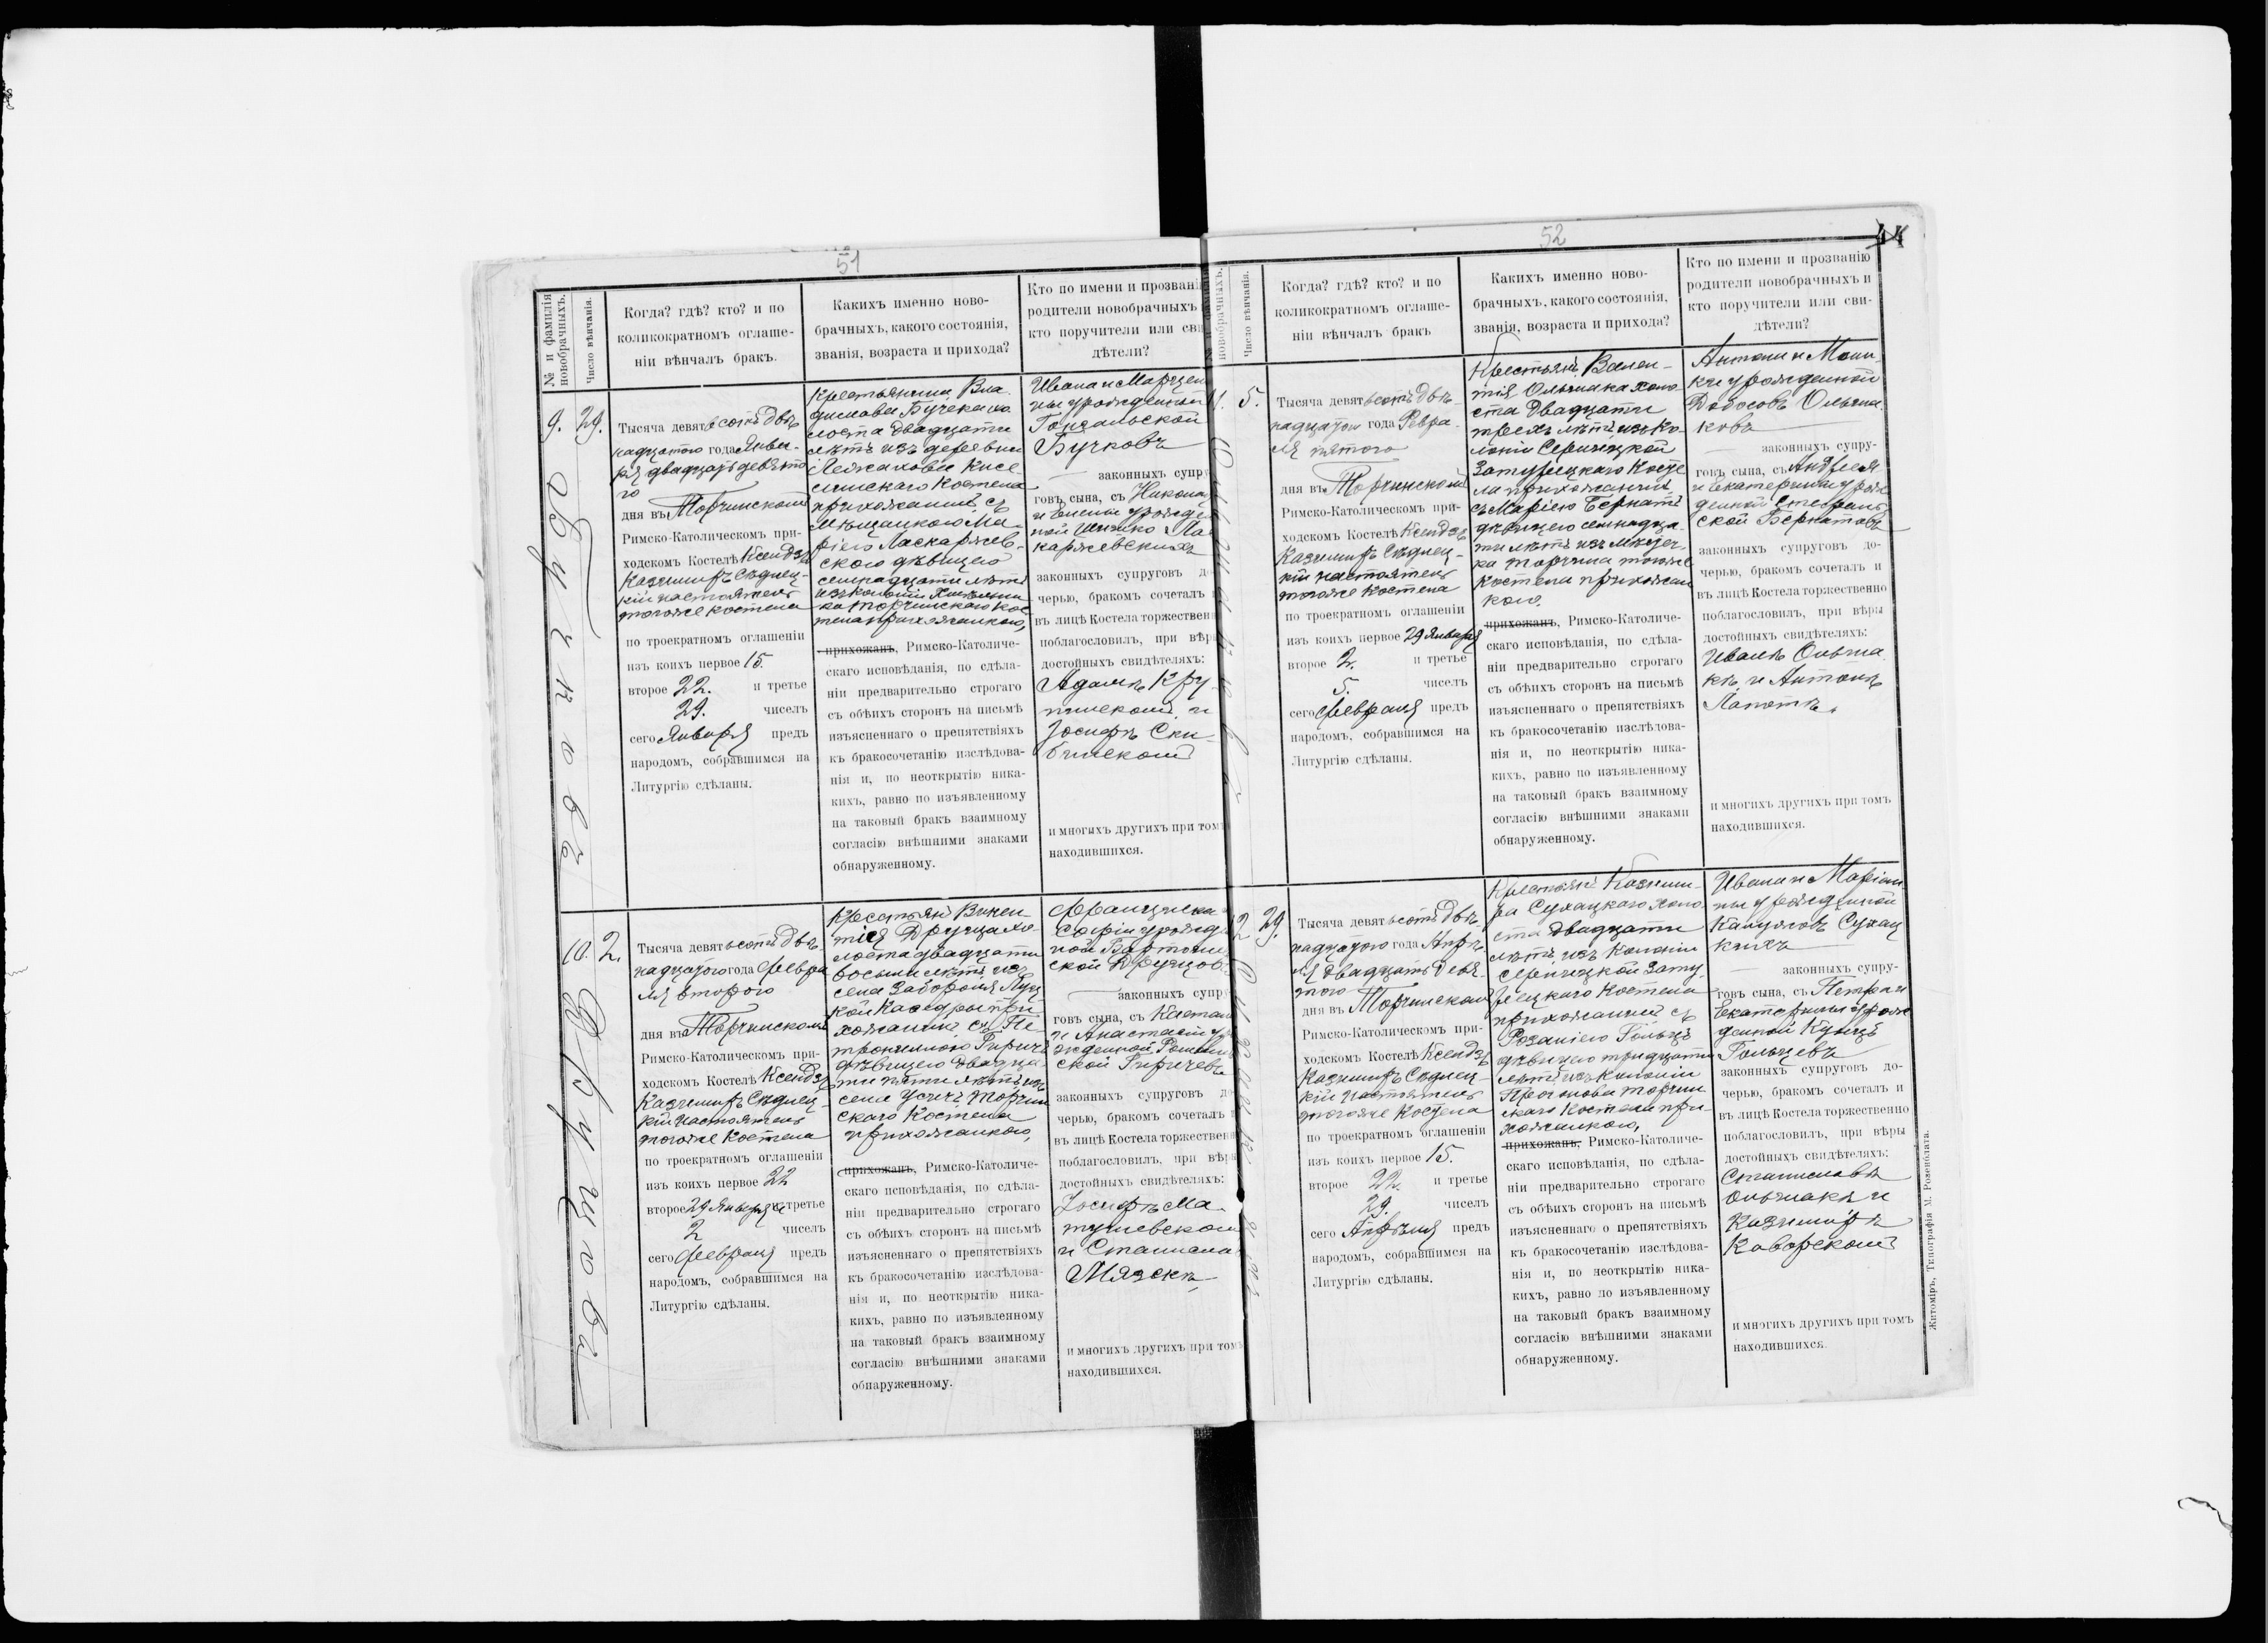 51
№ и фамилія
новобрачныхъ.
Число вѣнчанія.
Когда? гдѣ? кто? и по
коликократномъ оглаше-
ніи вѣнчалъ бракъ.
Какихъ именно ново-
брачныхъ, какого состоянія,
званія, возраста и прихода?
Кто по имени и прозванію
родители новобрачныхъ
кто поручители или сви
дѣтели?
9. 29.
Тысяча девятьсотъ двѣ
надцатого года Янва-
ря двадцать девято
го
дня въ Торчинскомъ
Римско-Католическомъ при-
ходскомъ Костелѣ Ксендзъ
Казимиръ Сѣдлец-
кій настоятель
тогоже костела
по троекратномъ оглашеніи
изъ коихъ первое 15.
второе 22. и третье
29. чиселъ
сего Января предъ
народомъ, собравшимся на
Литургію сдѣланы.
Крестьянина Вла-
дислава Бучека хо
лоста двадцати
лѣтъ изъ деревни
Киселинскаго костела
прихожанина съ
Мѣщанкою Ма-
ріею Ласкаржев-
скою дѣвицею
семнадцати лѣтъ
изъ колоніи
Торчинскаго кос
тела прихожанкою,
прихожанъ, Римско-Католиче-
скаго исповѣданія, по сдѣла-
ніи предварительно строгаго
съ обѣихъ сторонъ на письмѣ
изъясненнаго о препятствіяхъ
къ бракосочетанію изслѣдова-
нія и, по неоткрытію ника-
кихъ, равно по изъявленному
на таковый бракъ взаимному
согласію внѣшними знаками
обнаруженному.
Ивана и Марцел
ны урожденной
Бучковъ
законныхъ супру
говъ, сына, съ Никола
и Елены урожде
ной
каржевскихъ
законныхъ супруговъ д
черью, бракомъ сочеталъ
въ лицѣ Костела торжествен
поблагословилъ, при вѣр
достойныхъ свидѣтеляхъ:
Адамъ Кру
пинскомъ и
Іосифъ Ски-
бинскомъ
и многихъ другихъ при том
находившихся.
Бучковъ
10. 2.
Тысяча девятьсотъ двѣ
надцатого года Февра
ля второго
дня въ Торчинскомъ
Римско-Католическомъ при-
ходскомъ Костелѣ Ксендзъ
Казимиръ Сѣдлец-
кій настоятель
тогоже костела
по троекратномъ оглашеніи
изъ коихъ первое 22
второе 29 Января и третье
2 чиселъ
сего Февраля предъ
народомъ, собравшимся на
Литургію сдѣланы.
Крестьян Викен-
тія Друцца хо-
лоста двадцати
восьми лѣтъ изъ
села Забороля Луц
кой Каѳедры при
хожанина съ Пе-
тронилою Гиричъ
дѣвицею двадца-
ти пяти лѣтъ изъ
села Усичъ Торчин
скаго Костела
прихожанкою,
прихожанъ, Римско-Католиче-
скаго исповѣданія, по сдѣла-
ніи предварительно строгаго
съ обѣихъ сторонъ на письмѣ
изъясненнаго о препятствіяхъ
къ бракосочетанію изслѣдова-
нія и, по неоткрытію ника-
кихъ, равно по изъявленному
на таковый бракъ взаимному
согласію внѣшними знаками
обнаруженному.
Франциска
Софіи урожд
ной
ской
законныхъ супр
говъ, сына, съ
и Анастасіи у
жденной
ской Гиричевъ
законныхъ супруговъ д
черью, бракомъ сочеталъ
въ лицѣ Костела торжествен
поблагословилъ, при вѣр
достойныхъ свидѣтеляхъ:
Іосифъ Ма-
тушевскомъ
и Станислав
Мязекъ
и многихъ другихъ при том
находившихся.
52
44
новобрачныхъ.
Число вѣнчанія.
Когда? гдѣ? кто? и по
коликократномъ оглаше-
ніи вѣнчалъ бракъ
Какихъ именно ново-
брачныхъ, какого состоянія,
званія, возраста и прихода?
Кто по имени и прозванію
родители новобрачныхъ и
кто поручители или сви-
дѣтели?
11. 5.
Тысяча девятьсотъ двѣ-
надцатого года Февра-
ля пятого
дня въ Торчинскомъ
Римско-Католическомъ при-
ходскомъ Костелѣ Ксендзъ
Казимиръ Сѣдлец-
кій настоятель
тогоже костела
по троекратномъ оглашеніи
изъ коихъ первое 29 Января
второе 2. и третье
5. чиселъ
сего Февраля предъ
народомъ, собравшимся на
Литургію сдѣланы.
Крестьян Вален-
тія Ольшака холо
ста двадцати
трехъ лѣтъ изъ ко-
лоніи
Затурецкаго косте
ла прихожанина
съ Маріею Бернатъ
дѣвицею семнадца-
ти лѣтъ изъ мѣстеч-
ка Торчина тогоже
костела прихожан
кою.
прихожанъ, Римско-Католиче-
скаго исповѣданія, по сдѣла-
ніи предварительно строгаго
съ обѣихъ сторонъ на письмѣ
изъясненнаго о препятствіяхъ
къ бракосочетанію изслѣдова-
нія и, по неоткрытію ника-
кихъ, равно по изъявленному
на таковый бракъ взаимному
согласію внѣшними знаками
обнаруженному.
Антони и Мони-
ки урожденной
Ольша-
ковъ
законныхъ супру-
говъ сына, съ Андрея
и Екатерины урож
денной Стефань
ской Бернатовъ
законныхъ супруговъ до-
черью, бракомъ сочеталъ и
въ лицѣ Костела торжественно
поблагословилъ, при вѣры
достойныхъ свидѣтеляхъ:
Иванъ Ольша
къ и Антонъ
Лапотъ.
и многихъ другихъ при томъ
находившихся.
12 29.
Тысяча девятьсотъ двѣ-
надцатого года Апрѣ
ля двадцать девя-
того
дня въ Торчинскомъ
Римско-Католическомъ при-
ходскомъ Костелѣ Ксендзъ
Казимиръ Сѣдлец-
кій настоятель
тогоже костела
по троекратномъ оглашеніи
изъ коихъ первое 15.
второе 22. и третье
29. чиселъ
сего Апрѣля предъ
народомъ, собравшимся на
Литургію сдѣланы.
Крестьян Казими-
ра Сухацкаго холо
ста двадцати
лѣтъ изъ колоніи
Зату
рецкаго костела
прихожанина съ
Розаліею Гольцъ
дѣвицею тридцати
лѣтъ изъ колоніи
Торчин
скаго костела при-
хожанкою,
прихожанъ, Римско-Католиче-
скаго исповѣданія, по сдѣла-
ніи предварительно строгаго
съ обѣихъ сторонъ на письмѣ
изъясненнаго о препятствіяхъ
къ бракосочетанію изслѣдова-
нія и, по неоткрытію ника-
кихъ, равно по изъявленному
на таковый бракъ взаимному
согласію внѣшними знаками
обнаруженному.
Ивана и Маріан
ны урожденной
Сухац
кихъ
законныхъ супру-
говъ сына, съ Петра и
Екатерины урож
денной Кунцъ
Гольцевъ
законныхъ супруговъ до-
черью, бракомъ сочеталъ и
въ лицѣ Костела торжественно
поблагословилъ, при вѣры
достойныхъ свидѣтеляхъ:
Станиславъ
Ольшакъ и
Казимиръ
Каворскомъ
и многихъ другихъ при томъ
находившихся.
Житоміръ, Типографія М. Розенблата.